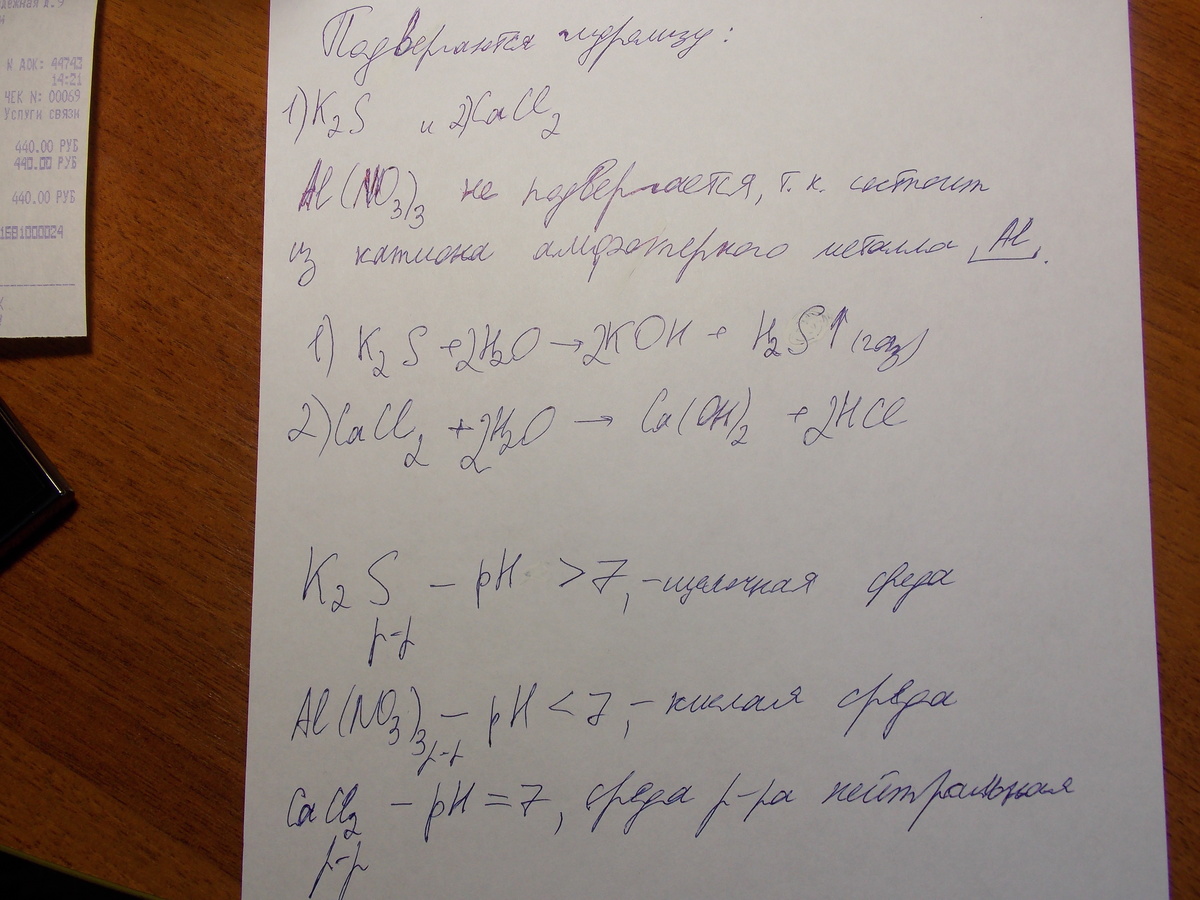 дежная д.9
N АОК: 44743
14:21
ЧЕК N: 00069
Услуги связи
440.00 РУБ
440.00 РУБ
440.00 РУБ
1EB1000024
Подвергаются гидролизу:
1) K₂S и 2) CaCl₂
Al(NO₃)₃ не подвергается, т.к. состоит
из катиона амфотерного металла Al.
1) K₂S + 2H₂O → 2KOH + H₂S↑ (газ)
2) CaCl₂ + 2H₂O → Ca(OH)₂ + 2HCl
K₂S – pH > 7, – щелочная среда
р-р
Al(NO₃)₃ – pH < 7, – кислая среда
р-р
CaCl₂ – pH = 7, среда р-ра нейтральная
р-р